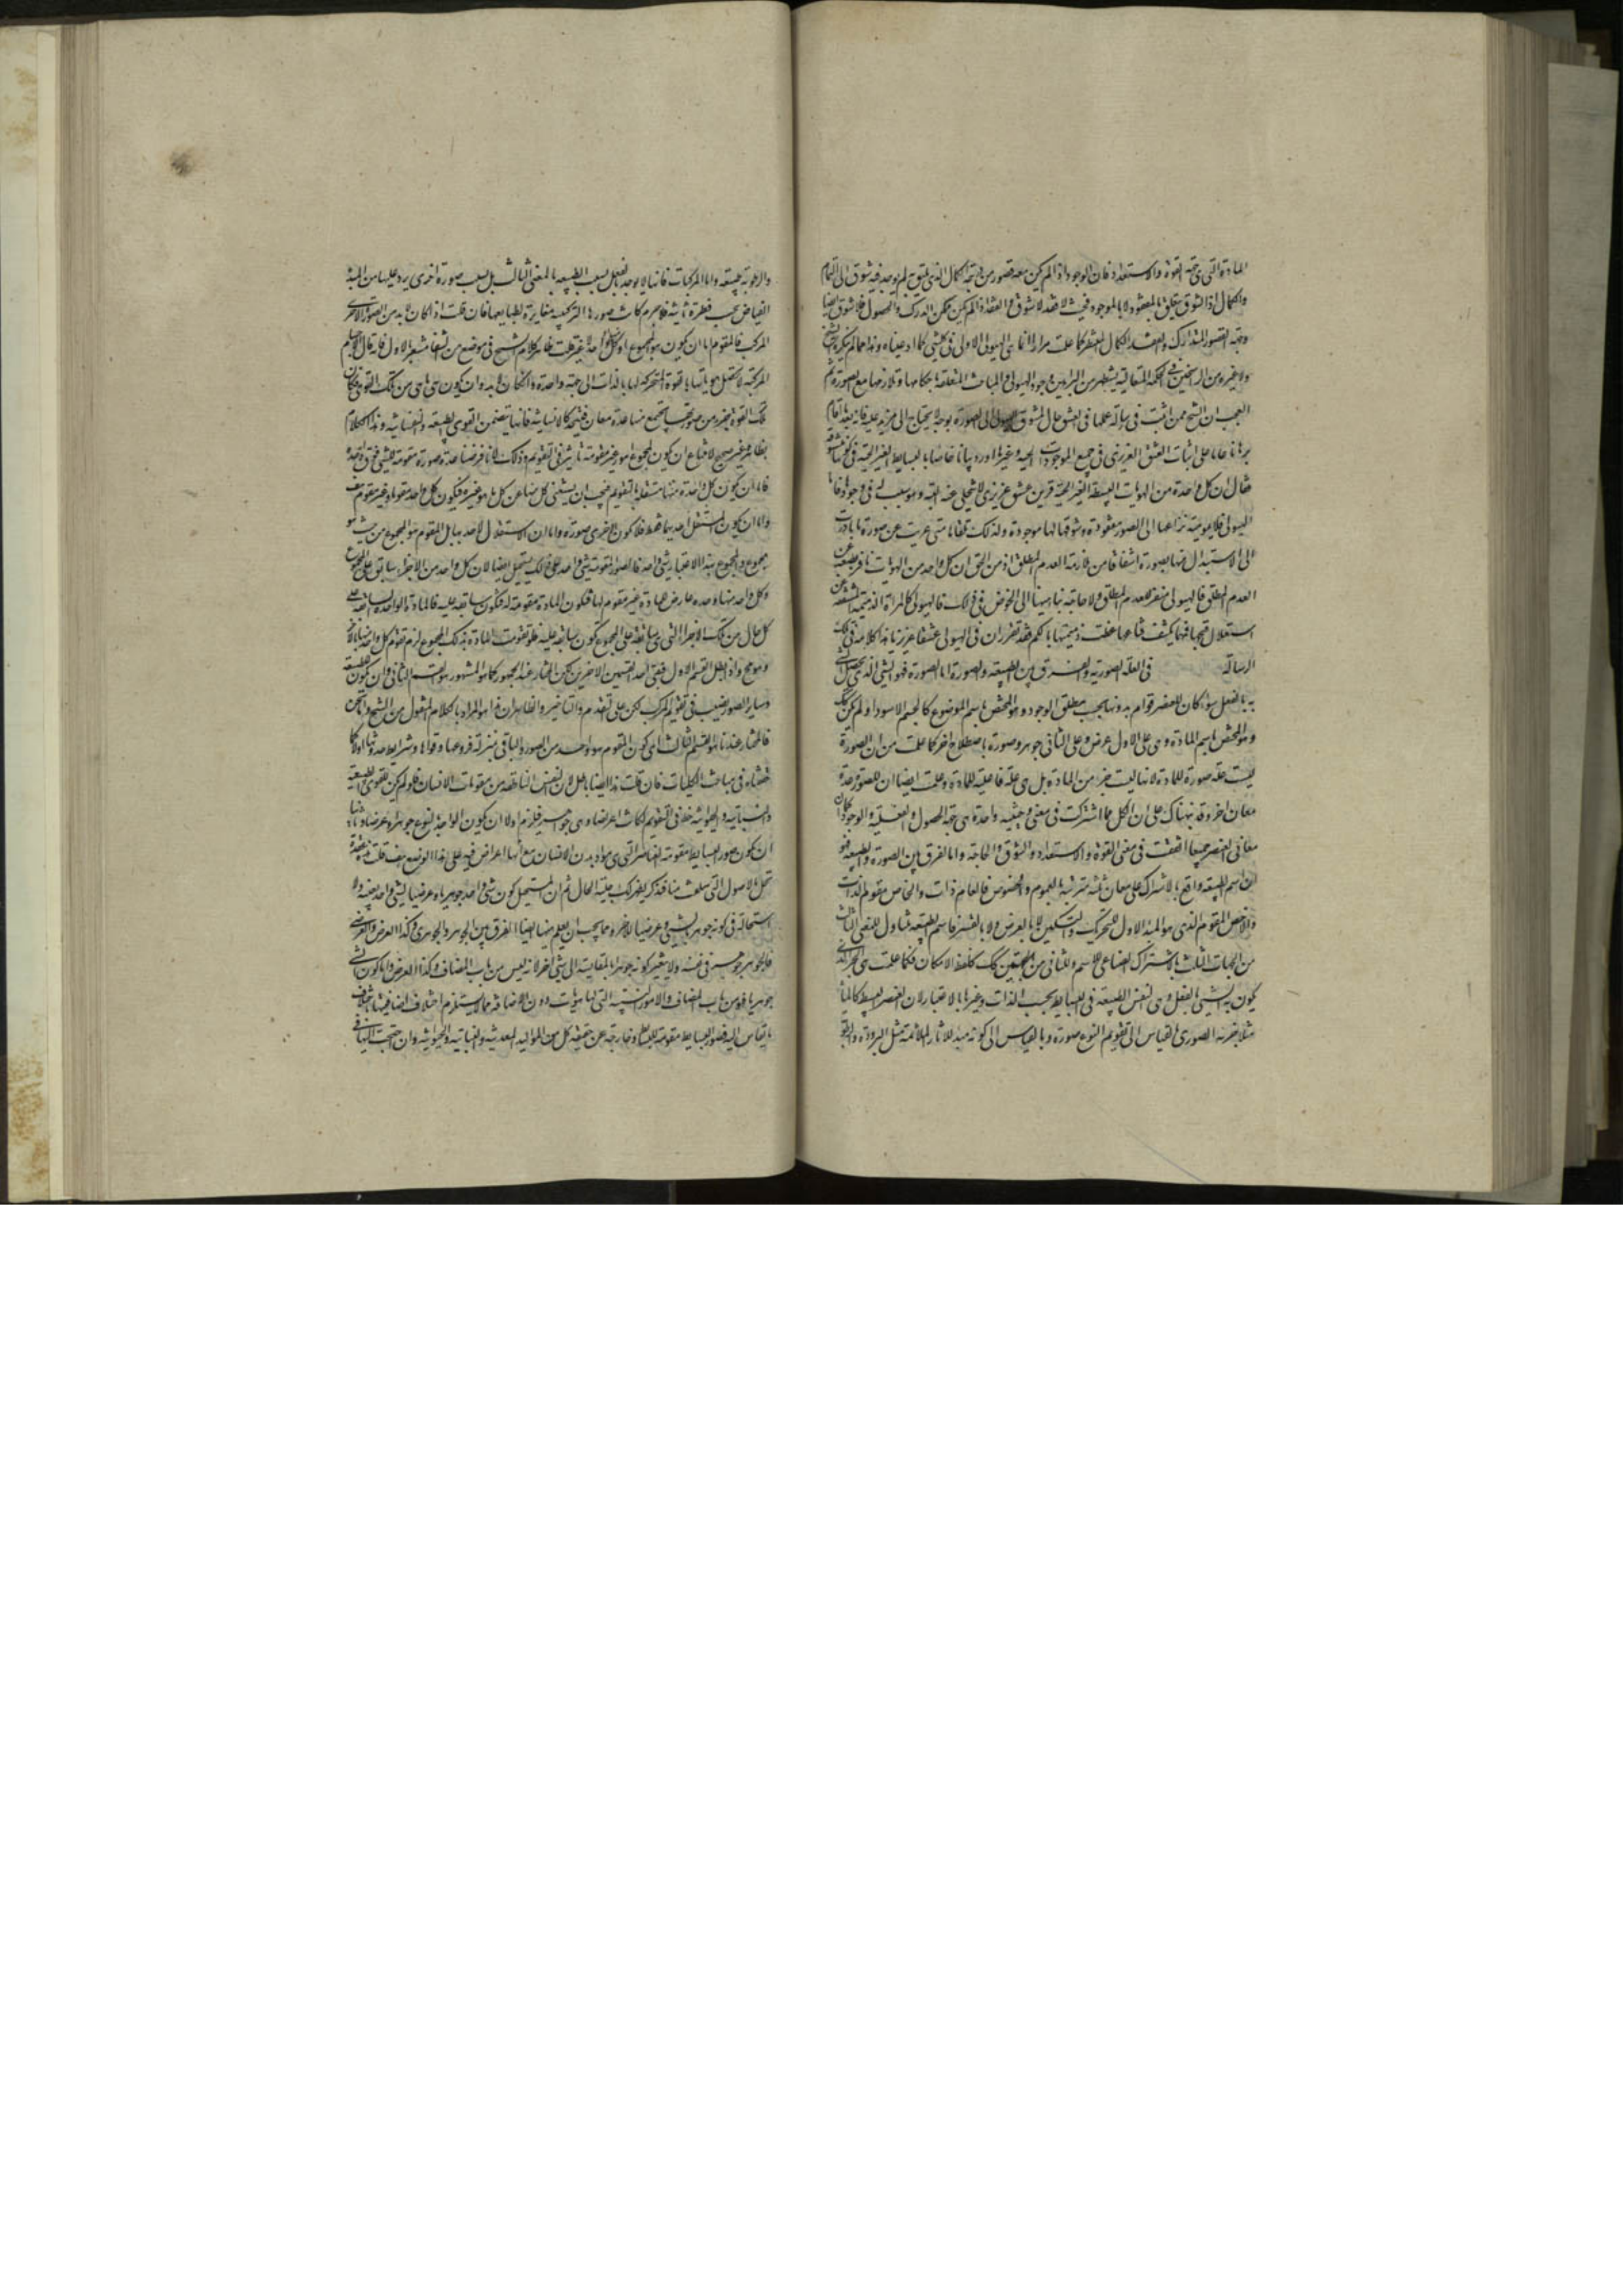 المادة التى هى جهة القوة والاستعداد فان الوجود اذا لم يكن معه قصور من جهة الكمال الذى يليق به لم يوجد فيه شوق الى التمام
والكمال اذ الشوق يتعلق بالمفقود لا بالموجود فحيث لا فقد لا شوق والفقد اذا لم يكن ممكن الدرك والحصول فلا شوق ايضا
وجهة القصور المتدارك والفقد الكمال المنتظر كما علمت مرارا انما هى الهيولى الاولى فى كل شىء كما ادعيناه وهذا مما لم ينكره الشيخ
ولا غيره من الراسخين فى الحكمة المتعالية يستظهر من البراهين وجود الهيولى والمباحث المتعلقة باحكامها وتلازمها مع الصورة ثم
العجب ان الشيخ ممن اثبت فى رسالة عملها فى العشق حال تشوق الهيولى الى الصورة بوجه لا يحتاج الى مزيد عليه فانه بعد ما اقام
برهانا عاما على اثبات العشق الغريزى فى جميع الموجودات الحية وغيرها اورد بيانا خاصا بالبسايط الغير الحية فى كونها عاشقة
فقال ان كل واحدة من الهويات البسيطة الغير الحية قرين عشق غريزى لا يتخلى عنه البتة وهو سبب له فى وجوده فاما
الهيولى فلديمومية نزاعها الى الصورة مفقودة وشوقها لها موجودة ولذلك تلقاها متى عريت عن صورة بادرت
الى الاستبدال عنها بصورة اشفاقا من ملازمة العدم المطلق اذ من الحق ان كل واحد من الهويات نافر بطبعه عن
العدم المطلق فالهيولى منفر للعدم المطلق ولا حاجة بنا هيهنا الى الخوض فى لمية ذلك فالهيولى كالمراة الذميمة المشفقة عن
استعلان قبحها فمهما يكشف قناعها غطت ذميمتها بالكم فقد تقرر ان فى الهيولى عشقا غريزيا هذا كلامه فى تلك
الرسالة فى العلة الصورية والفرق بين الطبيعة والصورة اما الصورة فهو الشىء الذى يحصل الشىء
به بالفعل سواء كان للعنصر قوام بدونها بحسب مطلق الوجود وهو المختص باسم الموضوع كالجسم الاسود او لم يكن كذلك
وهو المختص باسم المادة وهى على الاول عرض وعلى الثانى جوهر وصورة باصطلاح اخر كما علمت من ان الصورة
ليست علة صورية للمادة لانها ليست جزءا من المادة بل هى علة فاعلية للمادة وعلمت ايضا ان للصورة عدة
معان اخر وقد نبهناك على ان الكل مما اشتركت فى معنى وحيثية واحدة هى جهة الحصول والفعلية والوجود كما ان
معانى العنصر جميعا اتفقت فى معنى القوة والاستعداد والشوق والحاجة واما الفرق بين الصورة والطبيعة فهو
ان اسم الطبيعة واقع بالاشتراك على معان ثلثة مترتبة بالعموم والخصوص فالعام ذات والخاص مقوم الذات
والاخص المقوم الذى هو المبدا الاول للتحريك والتسكين لا بالعرض ولا بالقسر فاسم الطبيعة متناول للمعنى الثالث
من الجهات الثلث بالاشتراك الصناعى للاسم وللثانى من الجهتين كك كلفظ الامكان فكما علمت هى الجزء الذى
يكون به الشىء بالفعل وهى نفس الطبيعة فى البسايط بحسب الذات وغيرها بالاعتبار لان العنصر البسيط كالماء
مثلا جزءه الصورى بالقياس الى تقويم النوع صورة وبالقياس الى كونه مبدا للاثار الملائمة مثل البرودة والرطوبة
والرطوبة طبيعة واما المركبات فانها لا يوجد بالفعل بسبب الطبيعة بالمعنى الثالث بل بسبب صورة اخرى يرد عليها من المبدا
الفياض بحسب فطرة ثانية فلا جرم كانت صورها التركيبية مغايرة لطبايعها فان قلت اذ لا كان لا بد من الصور الاخرى
المركب فالمقوم اما ان يكون هو المجموع او كل واحد غير قلت ظاهر كلام الشيخ فى موضع من الشفا مشعر بالاول فانه قال الاجسام
المركبة لا تحصل هوياتها بالقوة المتحركة لها بالذات الى جهة واحدة وان كان لا بد وان يكون هى ما هى من تلك القوى فكان
تلك القوة جزء من صورتها تجتمع منها عدة معان فتتحد كالانسانية فانها يتضمن القوى الطبيعية والنفسانية وهذا الكلام
بظاهره غير صحيح لامتناع ان يكون لمجموع امور غير مقومة تاثير فى التقويم وذلك لانا فرضنا عدة صورة مقومة لشىء فوق واحدة
فاما ان يكون كل واحدة منها مستقلة بالتقويم فيجب ان يستغنى كل منها عن كل ما هو غيره فيكون كل واحد مقوما وغير مقوم هف
واما ان يكون المستقل احديهما فقط فلا يكون الاخرى صورة واما ان الاستقلال لاحد بها بل المقوم هو المجموع من حيث هو
مجموع والمجموع بهذا الاعتبار شىء واحد فالصورة المقومة شىء واحد على ذلك يستحيل ايضا لان كل واحد من الاجزاء سابق على المجموع
وكل واحد منها وحده عارض للمادة غير مقوم لها فتكون المادة مقومة له فتكون سابقة عليه فالمادة الواحدة السابقة على
كل حال من تلك الاجزاء التى هى سابقة على المجموع يكون سابقة عليه فلو تقومت المادة بذلك المجموع لزم تقوم كل واحد منهما بالاخر
وهو مح واذا بطل القسم الاول فبقى احد القسمين الاخرين لكن المختار عند الجمهور كما هو المشهور هو القسم الثانى وان يكون للطبيعة
وساير الصور نصيب فى تقويم المركب لكن على تقدم والتاخير والظاهر ان هذا هو المراد بالكلام المنقول من الشيخ واما نحن
فالمختار عندنا هو القسم الثالث اى كون المقوم هو واحد من الصور والباقى بمنزلة فروعها وقواها وشرايط حدوثها اولا كما
حققناه فى مباحث الكليات فان قلت هذا ايضا باطل لان النفس الناطقة من مقومات الانسان فلو لم يكن للقوى الطبيعية
والنباتية والحيوانية حظ فى التقويم لكانت اعراضا وهى جواهر فلزم اولا ان يكون الواحد بالنوع جوهرا وعرضا وثانيا
ان يكون صور البسايط مقومة لعناصر التى هى مواد بدن الانسان مع انها اعراض فيه على هذا الوضع هف قلت هذه عقدة
تحل بالاصول التى سلفت منا فتذكر ليظهر لك جلية الحال ثم ان المستحيل كون شىء واحد جوهريا وعرضيا لشىء واحد بعينه ولا
استحالة فى كونه جوهريا لشىء وعرضيا لاخر ومما يجب ان يعلم هيهنا ايضا الفرق بين الجوهر والجوهرى وكذا العرض والعرضى
فالجوهر جوهر فى نفسه ولا يتغير كونه جوهرا بالمقايسة الى شىء اخر لانه ليس من باب المضاف وكذا العرض واما كون الشىء
جوهريا فهو من باب المضاف والامور النسبية التى لها هويات دون الاضافة مما لا يستلزم اختلاف اضافيتها باختلاف
ما يقاس اليه فصور البسايط مقومة للبسايط وخارجة عن حقيقة كل من المواليد المعدنية والنباتية والحيوانية وان احتيجت اليها فى